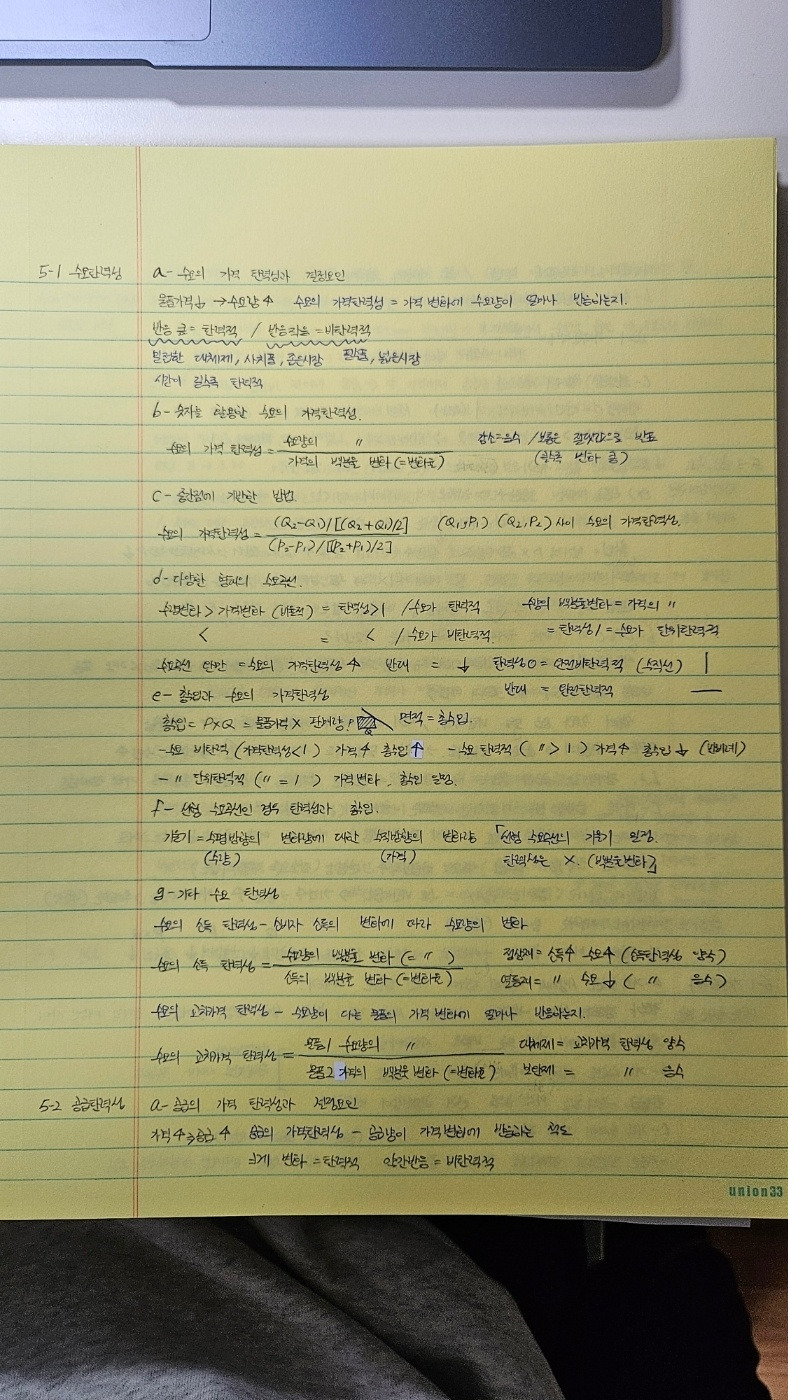 5-1 수요탄력성
a- 수요의 가격 탄력성과 결정요인
물품가격↓ → 수요량↑ 수요의 가격탄력성 = 가격 변화에 수요량이 얼마나 반응하는지.
반응 큼= 탄력적 / 반응작음 =비탄력적
밀접한 대체제, 사치품, 좁은시장 필수품, 넓은시장
시간이 길수록 탄력적
b- 숫자를 활용한 수요의 가격탄력성.
수요의 가격 탄력성 = 수요량의 〃 / 가격의 백분율 변화 (=변화율) 감소=음수 / 보통은 절댓값으로 발표
(클수록 변화 큼)
c- 중간점에 기반한 방법.
수요의 가격탄력성 = (Q2-Q1)/[(Q2+Q1)/2] / (P2-P1)/[(P2+P1)/2] (Q1, P1) (Q2, P2) 사이 수요의 가격탄력성.
d- 다양한 형태의 수요곡선.
수량변화 > 가격변화 (비율적) = 탄력성>1 / 수요가 탄력적 수량의 백분율변화 = 가격의 〃
< = < / 수요가 비탄력적. = 탄력성1 = 수요가 단위탄력적
수요곡선 완만 = 수요의 가격탄력성 ↑ 반대 = ↓ 탄력성0 = 완전비탄력적 (수직선) |
e- 총수입과 수요의 가격탄력성 반대 = 완전탄력적 —
총수입= P×Q = 물품가격 × 판매량. P Q 면적 = 총수입.
-수요 비탄력 (가격탄력성<1) 가격↑ 총수입↑ -수요 탄력적 (〃 > 1) 가격↑ 총수입↓ (반비례)
- 〃 단위탄력적 (〃 = 1) 가격변화, 총수입 일정.
f- 선형 수요곡선의 경우 탄력성과 총수입.
기울기 = 수평방향의 변화량에 대한 수직방향의 변화량 「선형 수요곡선의 기울기 일정.
(수량) (가격) 탄력성은 X. (백분율변화)」
g- 기타 수요 탄력성
수요의 소득 탄력성 - 소비자 소득의 변화에 따라 수요량의 변화
수요의 소득 탄력성 = 수요량의 백분율 변화 (= 〃 ) / 소득의 백분율 변화 (=변화율) 정상재= 소득↑ 수요↑ (소득탄력성 양수)
열등재= 〃 수요↓ ( 〃 음수)
수요의 교차가격 탄력성 - 수요량이 다른 물품의 가격 변화에 얼마나 반응하는지.
수요의 교차가격 탄력성 = 물품1 수요량의 〃 / 물품2 가격의 백분율 변화 (=변화율) 대체제= 교차가격 탄력성 양수
보완제 = 〃 음수
5-2 공급탄력성
a- 공급의 가격 탄력성과 결정요인
가격↑→공급↑ 공급의 가격탄력성 - 공급량이 가격변화에 반응하는 척도
크게 변화 =탄력적 약간반응 = 비탄력적
union33